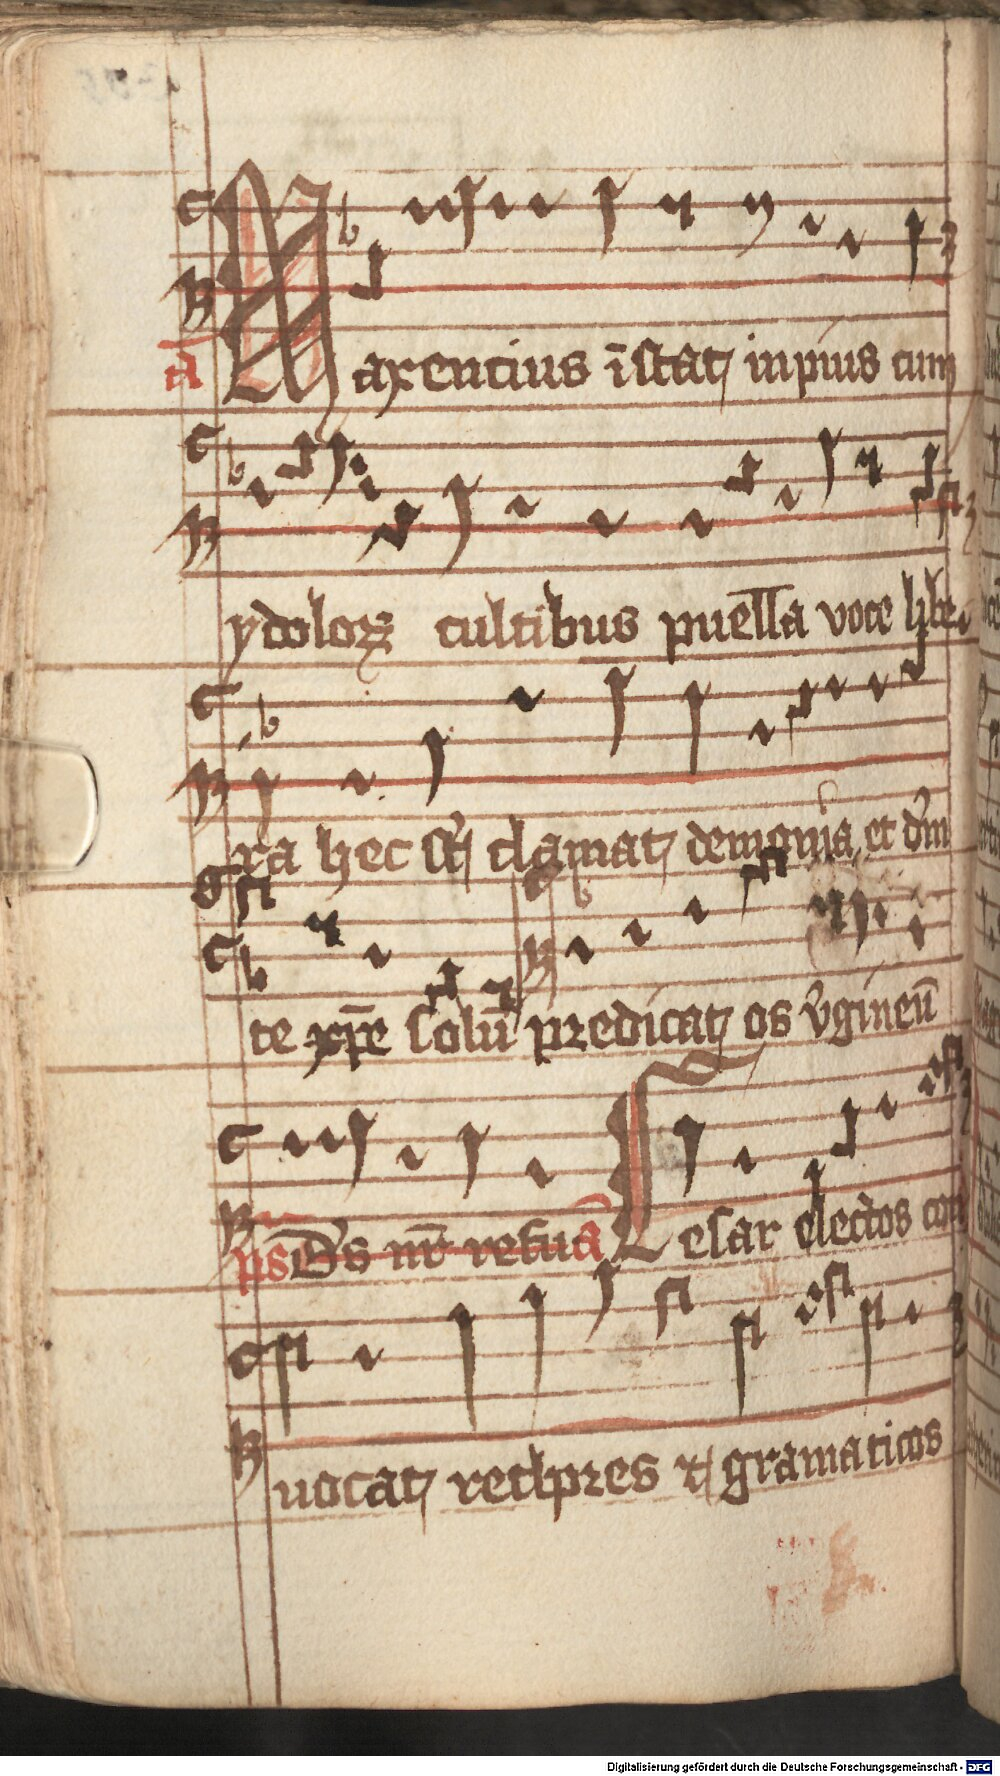 a̅ Maxencius i̅stat inpius cum
ydoloꝝ cultibus puel̅l̅a voce libe
ra hec clamat demonia et
te xp̅e solu̅ predicat os v̓gineu̅
ps Ds nr̅ refu a̅ Cesar electos con
uocat gramaticos
Digitalisierung gefördert durch die Deutsche Forschungsgemeinschaft - DFG